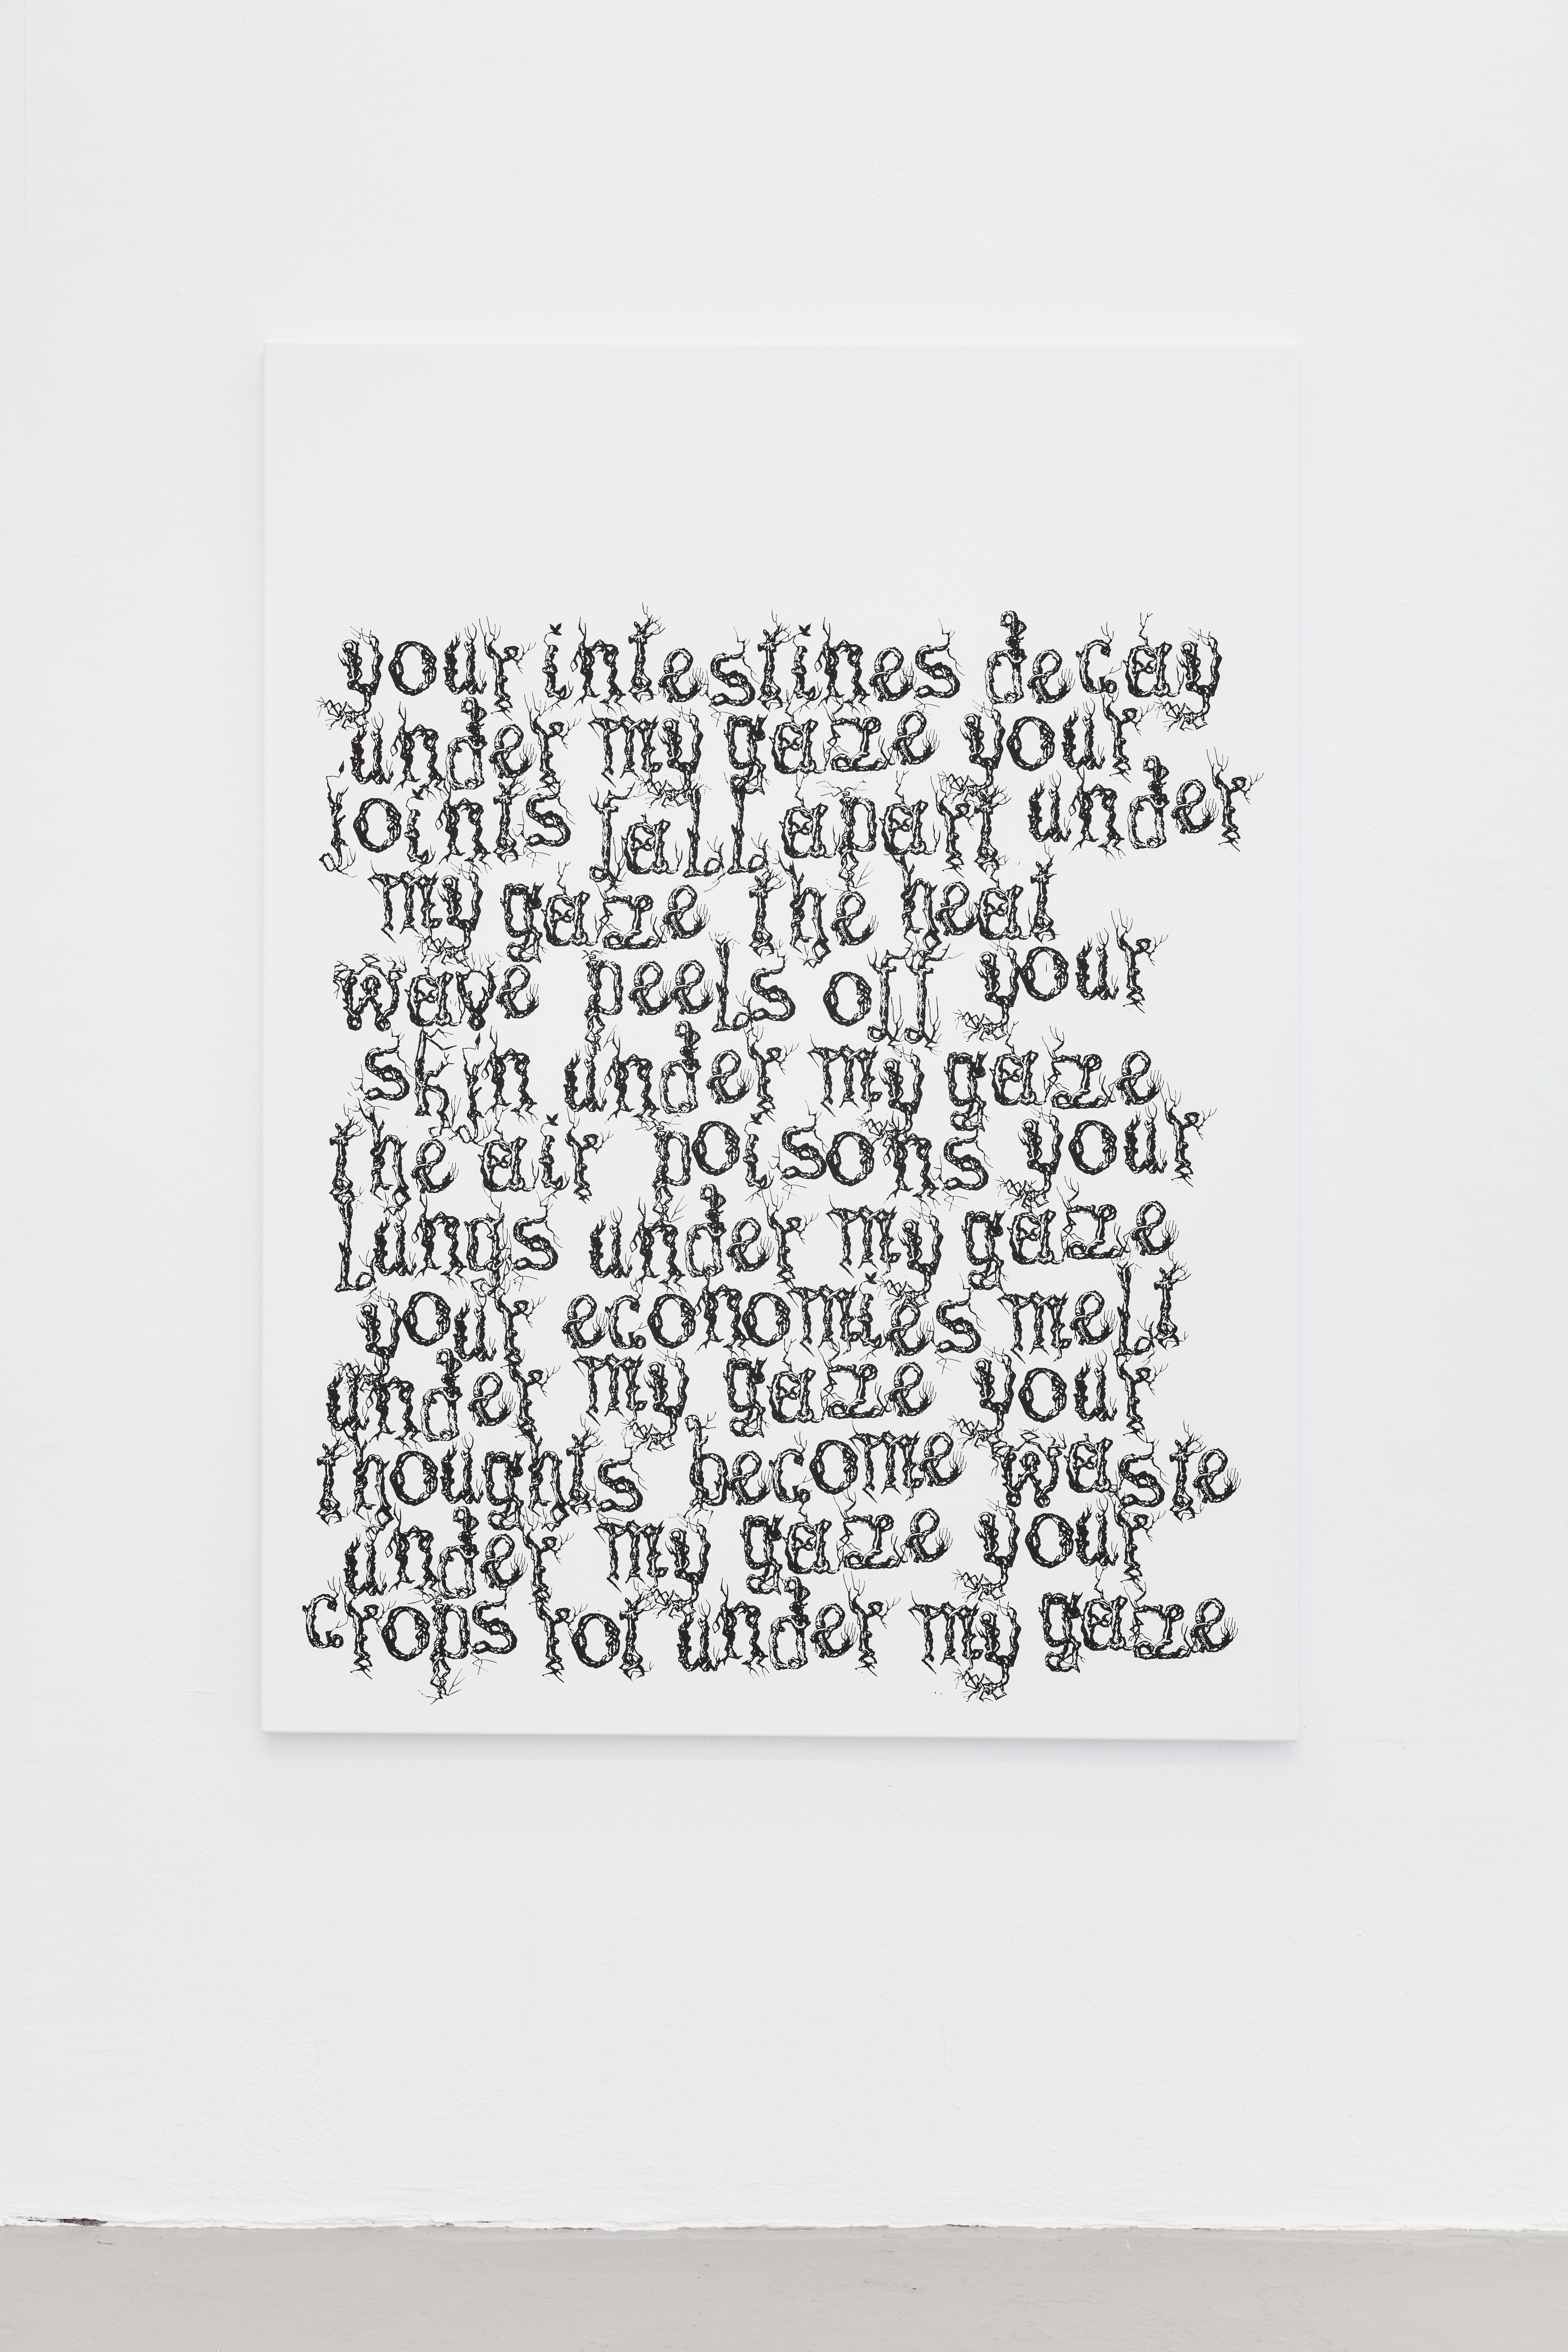 your intestines decay
under my gaze your
joints fall apart under
my gaze the heat
wave peels off your
skin under my gaze
the air poisons your
lungs under my gaze
your economies melt
under my gaze your
thoughts become waste
under my gaze your
crops rot under my gaze